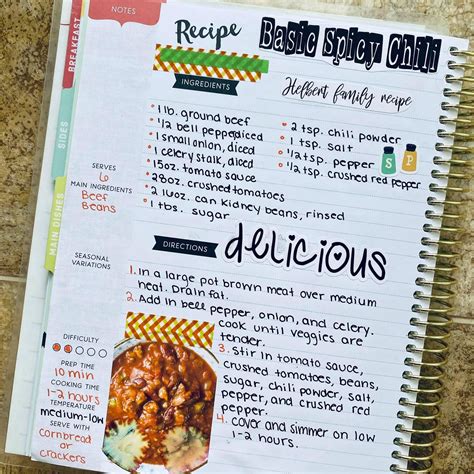 NOTES
Recipe
Basic Spicy Chili
INGREDIENTS
Helbert family recipe
BREAKFAST
SIDES
MAIN DISHES
1 lb. ground beef
1/2 bell pepper, diced
1 small onion, diced
1 celery stalk, diced
15oz. tomato sauce
28oz. crushed tomatoes
2 16oz. can kidney beans, rinsed
1 tbs. sugar
2 tsp. chili powder
1 tsp. salt
1/2 tsp. pepper
1/2 tsp. crushed red pepper
S P
SERVES
6
MAIN INGREDIENTS
Beef
Beans
SEASONAL
VARIATIONS
DIRECTIONS
delicious
1. In a large pot brown meat over medium
heat. Drain fat.
2. Add in bell pepper, onion, and celery.
cook until veggies are
tender.
3. Stir in tomato sauce,
crushed tomatoes, beans,
sugar, chili powder, salt,
pepper, and crushed red
pepper.
4. cover and simmer on low
1-2 hours.
DIFFICULTY
PREP TIME
10 min
COOKING TIME
1-2 hours
TEMPERATURE
medium-low
SERVE WITH
Cornbread
or
crackers